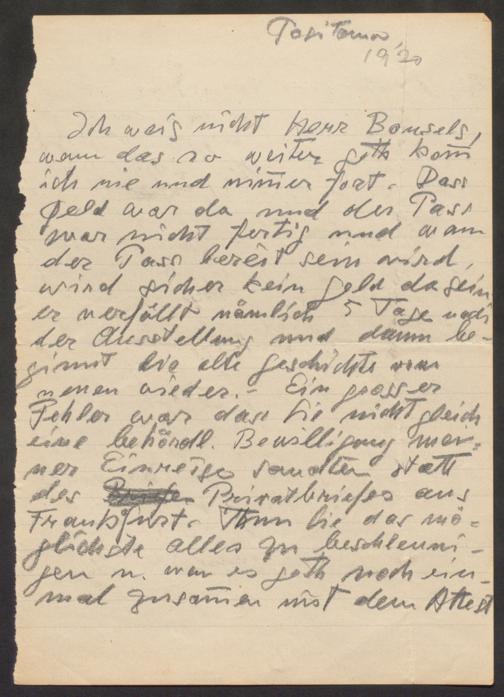 Positano
1920
Ich weis nicht Herr Bonsels,
wann das so weiter geth kom̄
ich nie und nim̄er fort. Dass
geld war da und der Pass
war nicht fertig und wann
der Pass bereit sein wird,
wird sicher kein geld da sein
er verfällt nämlich 5 Tage nach
der Ausstellung und dann be-
ginnt die alte geschichte von
neuen wieder.- Ein grosser
Fehler war dass Sie nicht gleich
eine behördl. Bewilligung mei-
ner Einreise sandten statt
des Briefes Privatbriefes aus
Frankfurt. Thun Sie das mö-
glichste alles zu beschleuni-
gen u. wan es geth noch ein-
mal zusam̄en mit dem Attest